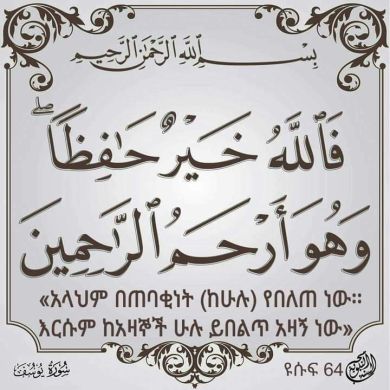 بِسْمِ ٱللَّهِ ٱلرَّحْمَٰنِ ٱلرَّحِيمِ
فَٱللَّهُ خَيْرٌ حَٰفِظًا ۖ
وَهُوَ أَرْحَمُ ٱلرَّٰحِمِينَ
«አላህም በጠባቂነት (ከሁሉ) የበለጠ ነው፡፡
እርሱም ከአዛኞች ሁሉ ይበልጥ አዛኝ ነው»
سُورَةُ يُوسُفَ
ዩሱፍ 64